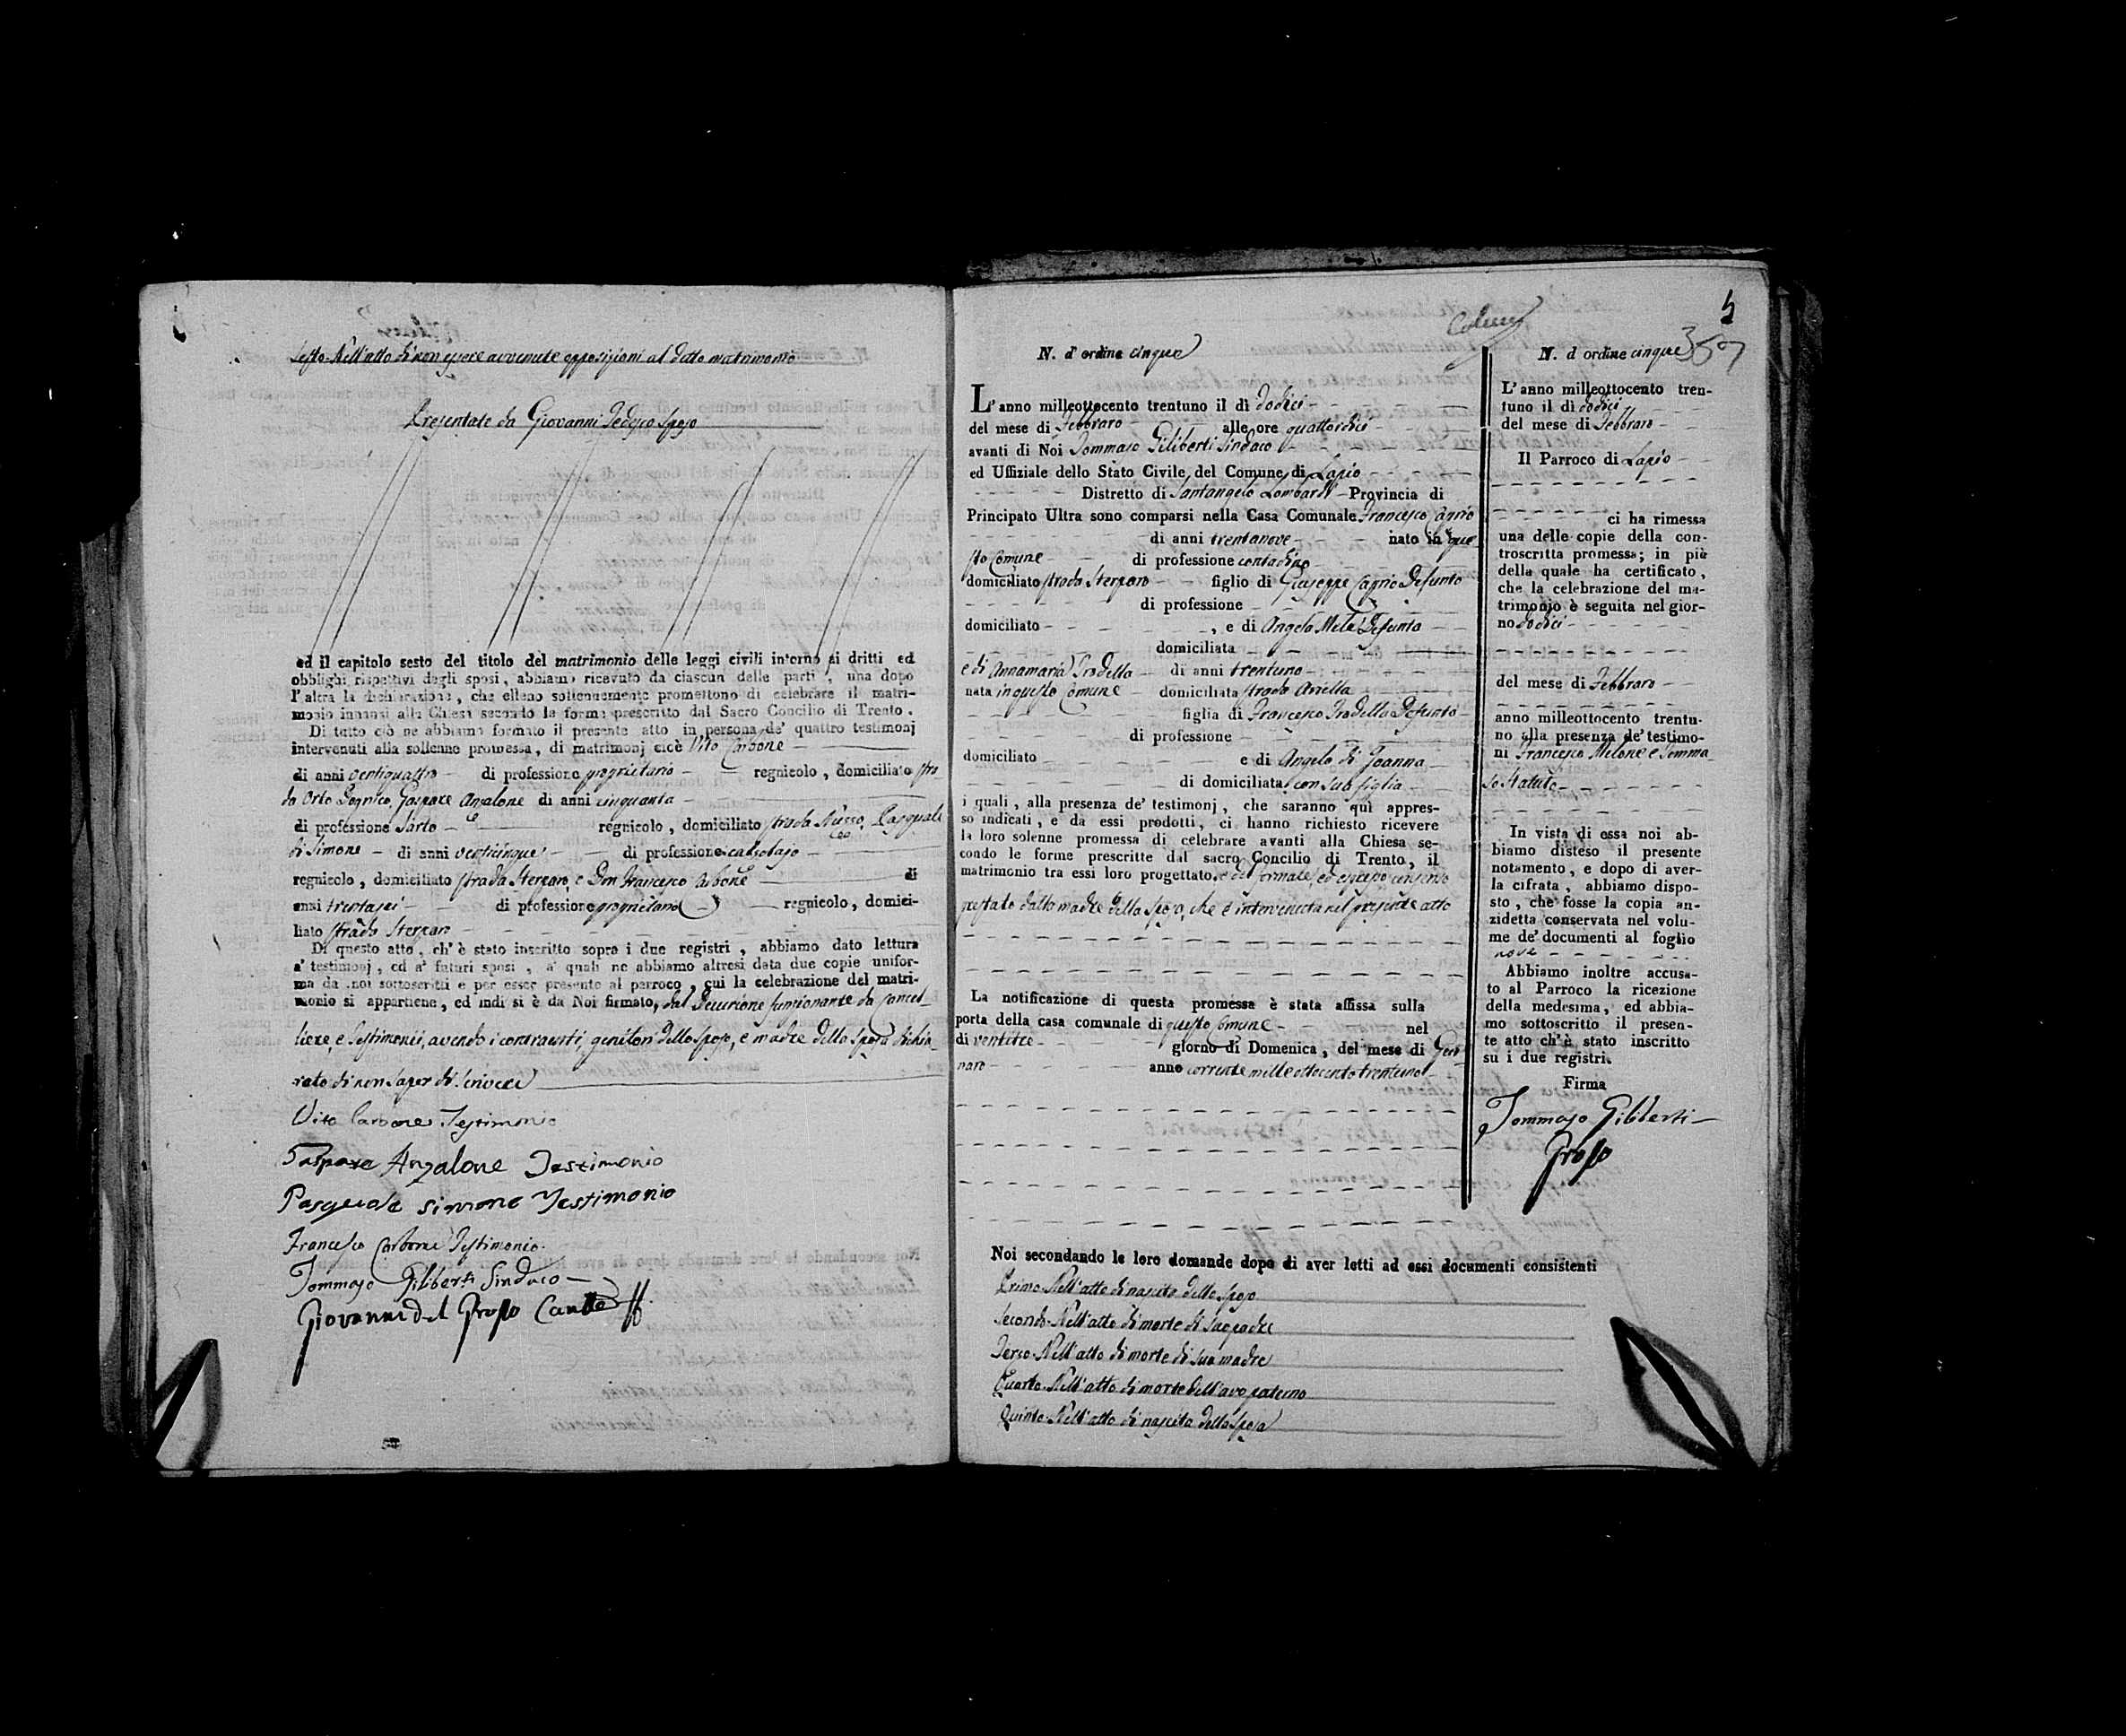 Sesto. Nell'atto di non essere avvenute opposizioni al detto matrimonio
Presentate da Giovanni Tedesco sposo
ed il capitolo sesto del titolo del matrimonio delle leggi civili intorno ai dritti ed
obblighi rispettivi degli sposi, abbiamo ricevuto da ciascun delle parti, una dopo
l'altra la dichiarazione, che elleno sollennemente promettono di celebrare il matri-
monio innanzi alla Chiesa secondo le forme prescritto dal Sacro Concilio di Trento.
Di tutto ciò ne abbiamo formato il presente atto in persona de' quattro testimonj
intervenuti alla sollenne promessa, di matrimonj cioè Vito Carbone
di anni ventiquattro di professione proprietario regnicolo, domiciliato stra
da Orto Gaspare Anzalone di anni cinquanta
di professione Sarto regnicolo, domiciliato strada Pasquale
di Simone di anni venticinque di professione calzolajo
regnicolo, domiciliato strada Sterparo, e Don Francesco Carbone di
anni trentasei di professione proprietario regnicolo, domici-
liato strada Sterparo
Di questo atto, ch' è stato inscritto sopra i due registri, abbiamo dato lettura
a' testimonj, ed a' futuri sposi, a' quali ne abbiamo altresì data due copie unifor-
ma da noi sottoscritti e per esser presente al parroco, cui la celebrazione del matri-
monio si appartiene, ed indi si è da Noi firmato, dal Decurione funzionante da Cancel-
liere, e Testimonii, avendo i contraenti, genitori dello sposo, e madre della sposa dichia-
rato di non saper di scrivere
Vito Carbone Testimonio
Gaspare Anzalone Testimonio
Pasquale Simone Testimonio
Francesco Carbone Testimonio
Tommaso Giliberti Sindaco
Giovanni del Grosso
5
357
N. d'ordine cinque
L'anno milleottocento trentuno il dì dodici
del mese di Febbraro alle ore quattordici
avanti di Noi Tommaso Giliberti Sindaco
ed Uffiziale dello Stato Civile del Comune di Lapio
Distretto di Santangelo Lombardi Provincia di
Principato Ultra sono comparsi nella Casa Comunale Francesco Capno
di anni trentanove nato in que
sto Comune di professione contadino
domiciliato strada Sterparo figlio di Giuseppe Defunto
di professione
domiciliato , e di Angela Mele Defunta
domiciliata
e di Annamaria Iradella di anni trentuno
nata in questo Comune domiciliata strada Ariella
figlia di Francesco Iradella Defunto
di professione
domiciliato e di Angela di Joanna
di domiciliata con sua figlia
i quali, alla presenza de' testimonj, che saranno quì appres-
so indicati, e da essi prodotti, ci hanno richiesto ricevere
la loro solenne promessa di celebrare avanti alla Chiesa se-
condo le forme prescritte dal sacro Concilio di Trento, il
matrimonio tra essi loro progettato, e del formale, ed espresso consenso
prestato dalla madre della sposa, che è intervenuta nel presente atto
La notificazione di questa promessa è stata affissa sulla
porta della casa comunale di questo Comune nel
dì ventitre giorno di Domenica, del mese di Gen
naro anno corrente mille ottocento trentuno
Noi secondando le loro domande dopo di aver letti ad essi documenti consistenti
Primo. Nell'atto di nascita dello sposo
Secondo. Nell'atto di morte di suo padre
Terzo. Nell'atto di morte di sua madre
Quarto. Nell'atto di morte dell'avo paterno
Quinto. Nell'atto di nascita della sposa
N. d'ordine cinque
L'anno milleottocento tren-
tuno il dì dodici
del mese di Febbraro
Il Parroco di Lapio
ci ha rimessa
una delle copie della con-
troscritta promessa; in piè
della quale ha certificato,
che la celebrazione del ma-
trimonio è seguita nel gior-
no dodici
del mese di Febbraro
anno milleottocento trentu-
no alla presenza de' testimo-
ni Francesco Melone e Tomma
so Statuto
In vista di essa noi ab-
biamo disteso il presente
notamento, e dopo di aver-
la cifrata, abbiamo dispo-
sto, che fosse la copia an-
zidetta conservata nel volu-
me de' documenti al foglio
nove
Abbiamo inoltre accusa-
to al Parroco la ricezione
della medesima, ed abbia-
mo sottoscritto il presen-
te atto ch'è stato inscritto
su i due registri.
Firma
Tommaso Giliberti
Grosso